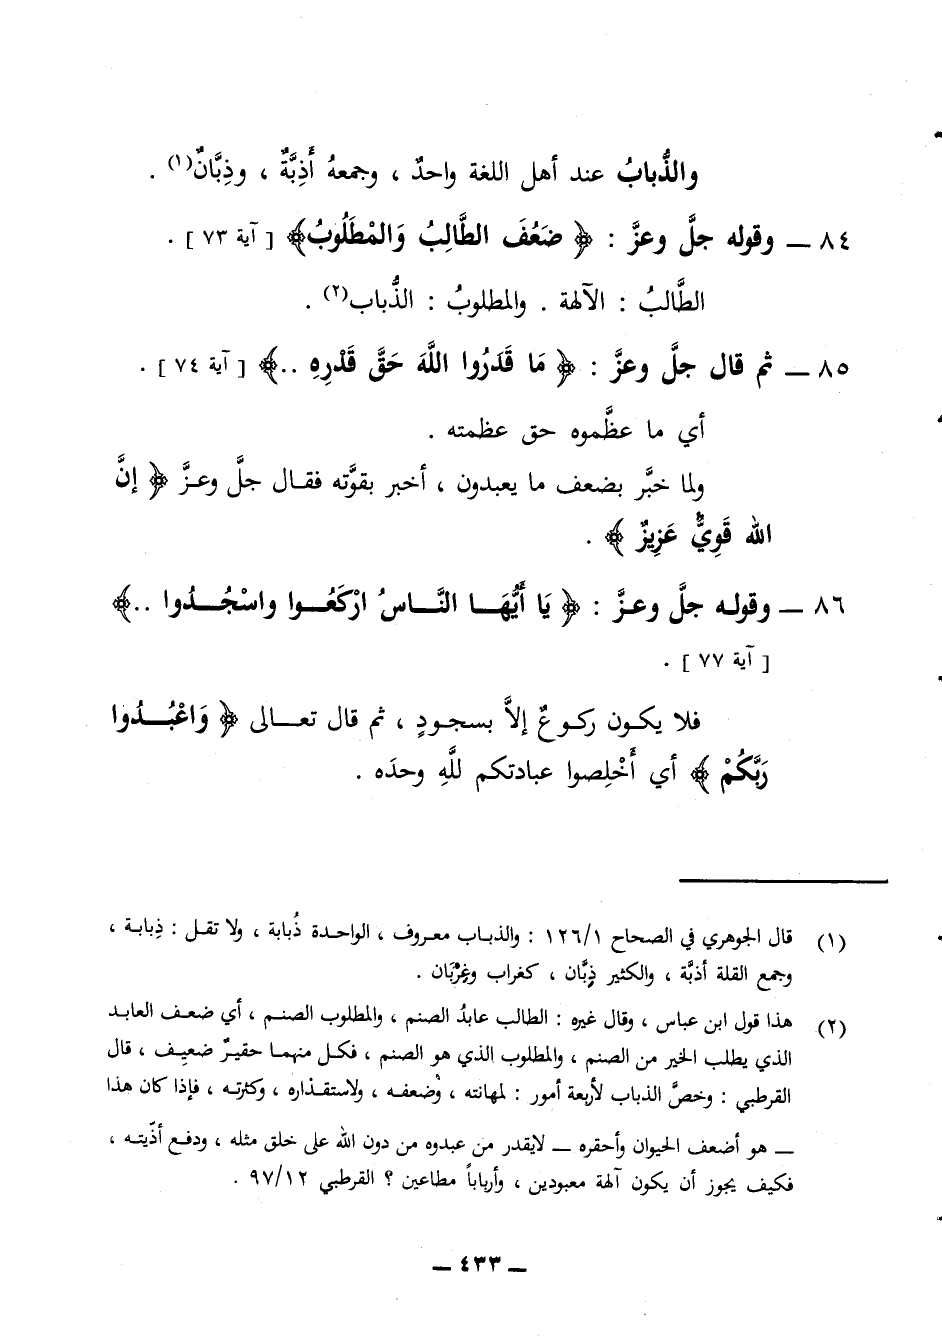 والذُّبابُ عند أهل اللغة واحدٌ ، وجمعهُ أَذِبَّةٌ ، وذِبَّانٌ(١) .
٨٤ ــ وقوله جلَّ وعزَّ : ﴿ ضَعُفَ الطَّالِبُ وَالمْطَلُوبُ﴾ [ آية ٧٣ ] .
الطَّالبُ : الآلهة . والمطلوبُ : الذُّباب(٢) .
٨٥ ــ ثم قال جلَّ وعزَّ : ﴿ مَا قَدَرُوا اللَّهَ حَقَّ قَدْرِهِ ..﴾ [ آية ٧٤ ] .
أي ما عظَّموه حق عظمته .
ولما خبَّر بضعف ما يعبدون ، أخبر بقوَّته فقال جلَّ وعزَّ ﴿ إنَّ
الله قَوِيٌّ عَزِيزٌ ﴾ .
٨٦ ــ وقوله جلَّ وعزَّ : ﴿ يَا أَيُّهَا النَّاسُ ارْكَعُوا واسْجُدُوا ..﴾
[ آية ٧٧ ] .
فلا يكون ركوعٌ إلاَّ بسجودٍ ، ثم قال تعالى ﴿ وَاعْبُدُوا
رَبَّكُمْ ﴾ أي أَخْلِصوا عبادتكم للَّهِ وحدَه .
(١) قال الجوهري في الصحاح ١٢٦/١ : والذباب معروف ، الواحدة ذُبابة ، ولا تقل : ذِبابة ،
وجمع القلة أذبَّة ، والكثير ذِبَّان ، كغراب وغِرْبَان .
(٢) هذا قول ابن عباس ، وقال غيره : الطالب عابدُ الصنم ، والمطلوب الصنم ، أي ضعف العابد
الذي يطلب الخير من الصنم ، والمطلوب الذي هو الصنم ، فكل منهما حقيرٌ ضعيف ، قال
القرطبي : وخصَّ الذباب لأربعة أمور : لمهانته ، وُضعفه ، ولاستقذاره ، وكثرته ، فإذا كان هذا
ــ هو أضعف الحيوان وأحقره ــ لايقدر من عبدوه من دون الله على خلق مثله ، ودفع أذّيته ،
فكيف يجوز أن يكون آلهة معبودين ، وأرباباً مطاعين ؟ القرطبي ٩٧/١٢ .
ــ ٤٣٣ ــ